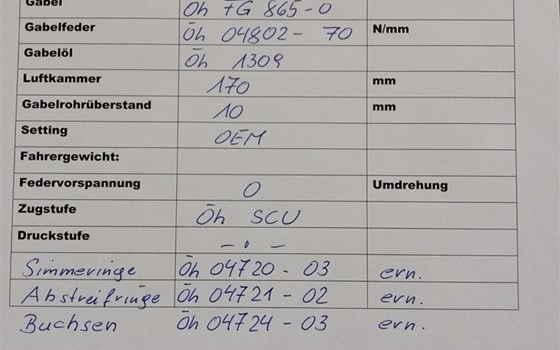 Gabel Öh FG 865-0
Gabelfeder Öh 04802- 70 N/mm
Gabelöl Öh 1309
Luftkammer 170 mm
Gabelrohrüberstand 10 mm
Setting OEM
Fahrergewicht:
Federvorspannung 0 Umdrehung
Zugstufe Öh SCU
Druckstufe - " -
Simmeringe Öh 04720 - 03 ern.
Abstreifringe Öh 04721 - 02 ern.
Buchsen Öh 04724 - 03 ern.